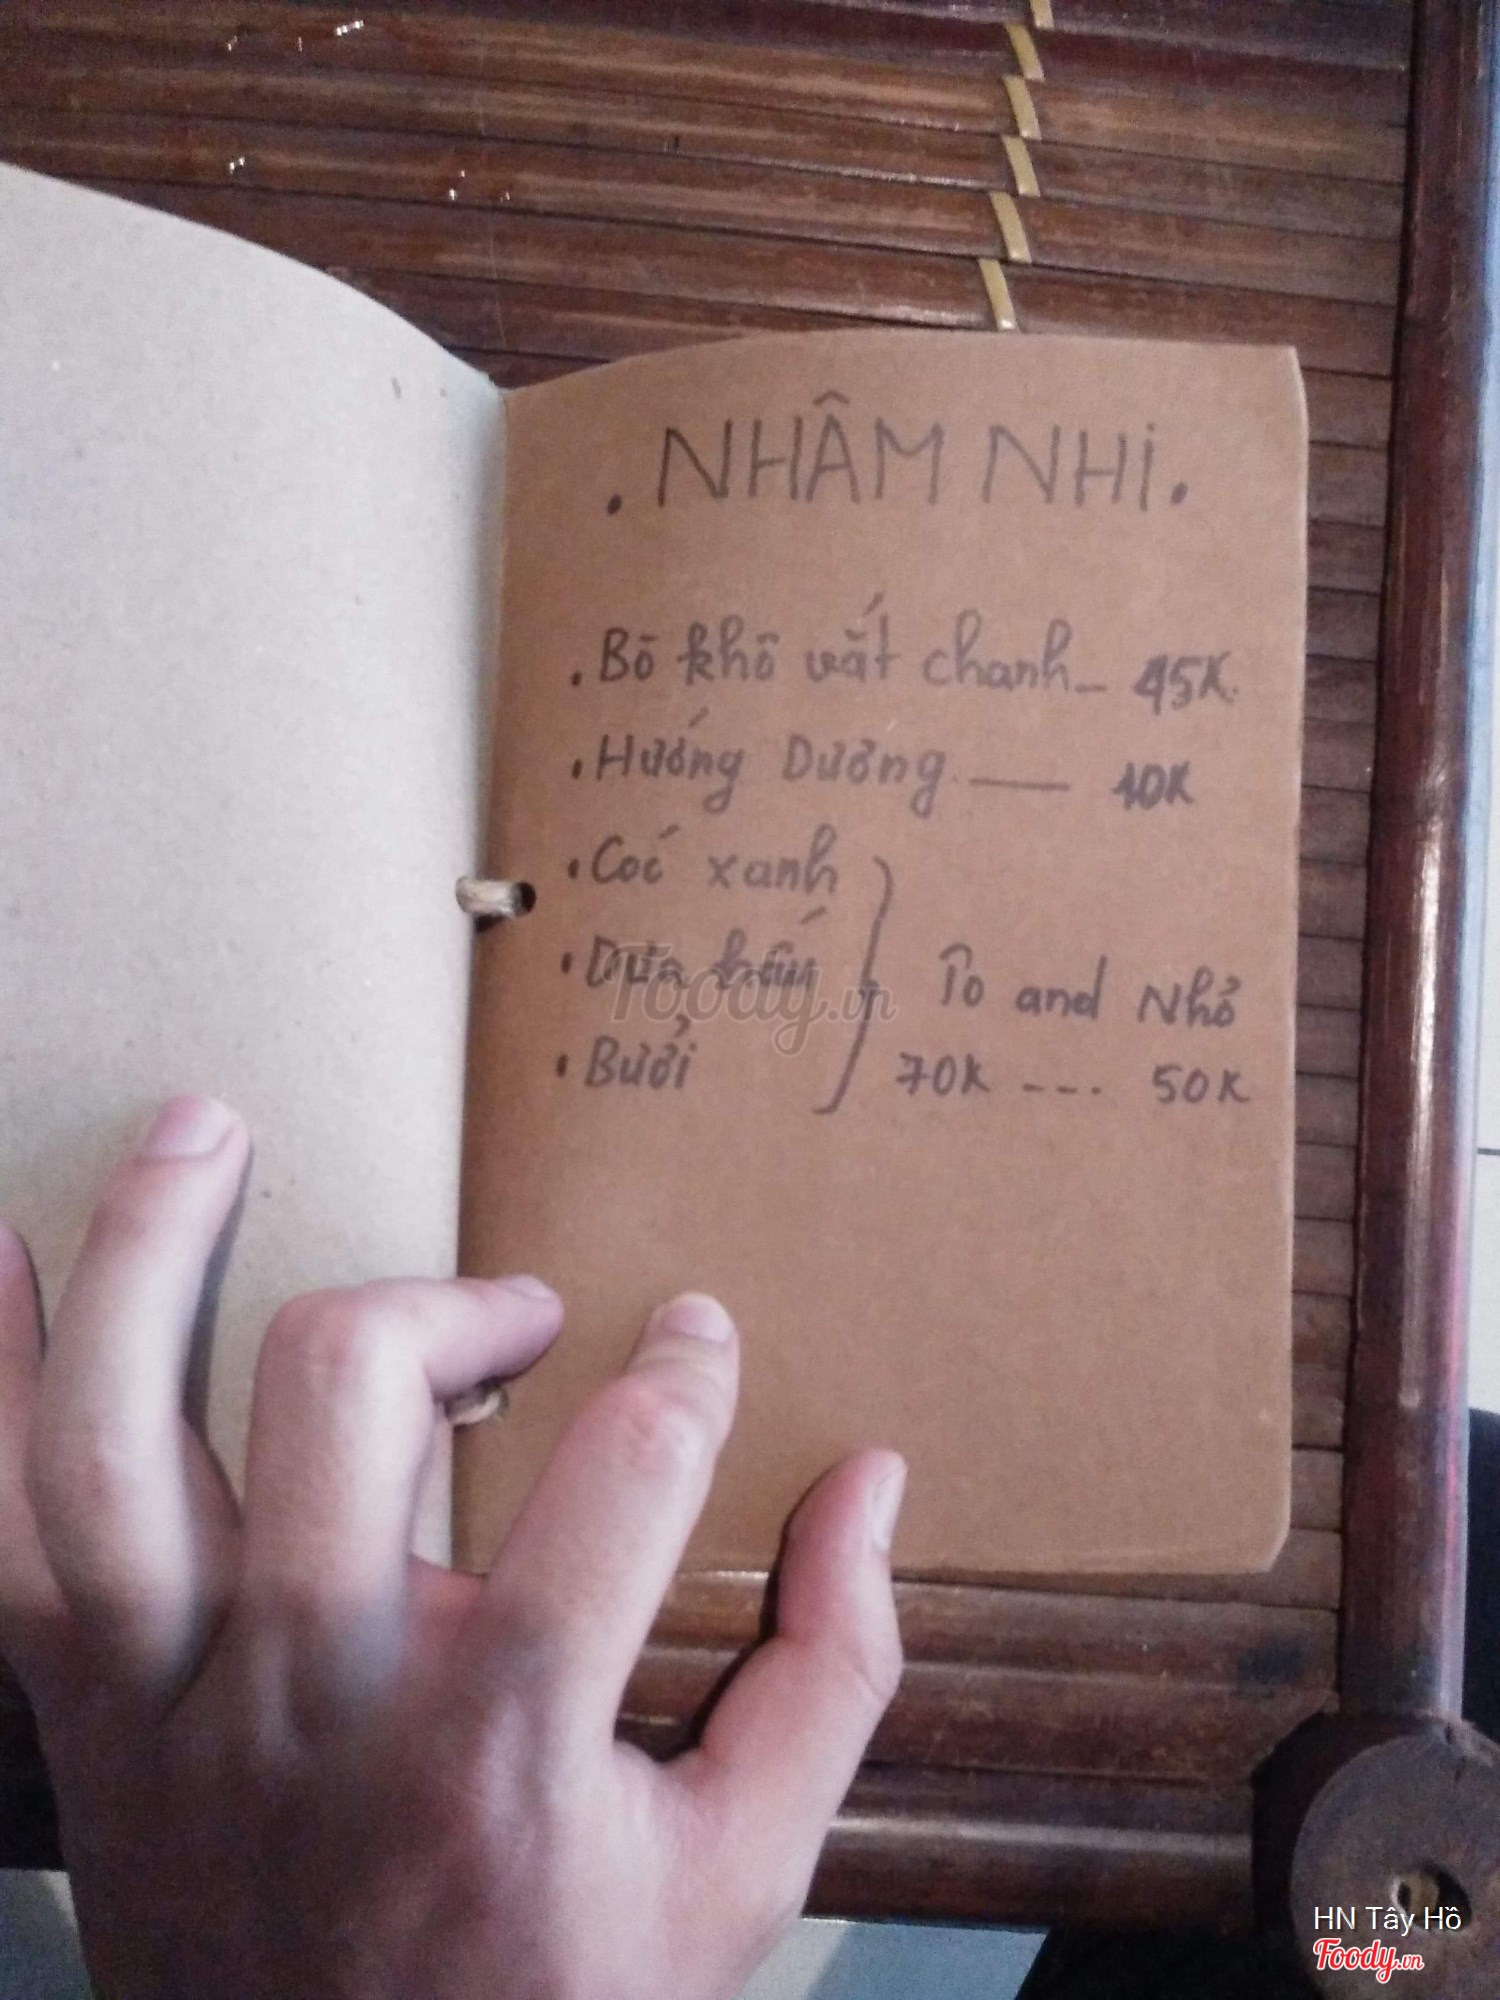 . NHÂM NHI .
. Bò khô vắt chanh - 45K.
. Hướng Dương. —— 10K
. Coć xanh
. Dưa hấu
. Bưởi
To and Nhỏ
70K --- 50K
Foody.vn
HN Tây Hồ
Foody.vn